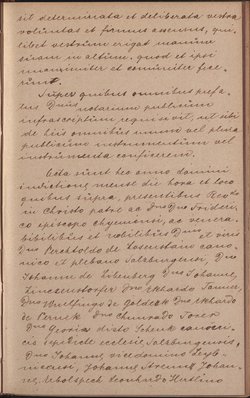 sit determinata et deliberata vestra
voluntas et firmus assensus, qui
libet vestrum erigat manum
suam in altum, quod et ipsi
unanimiter et communiter fece
runt.
Super quibus omnibus prefa
tus Dnus notarium publicum
infrascriptum requisivit, ut sibi
de hiis omnibus unum vel plura
publicum instrumentum vel
instrumenta conficerem.
Acta sunt hec anno domini
indictione, mense die hora et loco
quibus supra, presentibus Re
in Christo patre ac Dno Dno Friderico
co episcopo Chyemensi, ac venera
bibilibus et nobilibus Dnis et viris
Dno Perchtoldo de Losenstain cano
nico et plebano Salzburgensi, Dno
Johanne de Ebenberg Dno Johanne
Dno Ekhardo Tanner
Dno Wulfingo de Goldekk Dno Ekhardo
de Pernek Dno Chunrado
Dno Georio dicto Schenk canoni
cis ecclesie Salzburgensis,
Dno Johanne vicedomino Leyb
nicensi, Johanne Johan
ne, Leonhardo